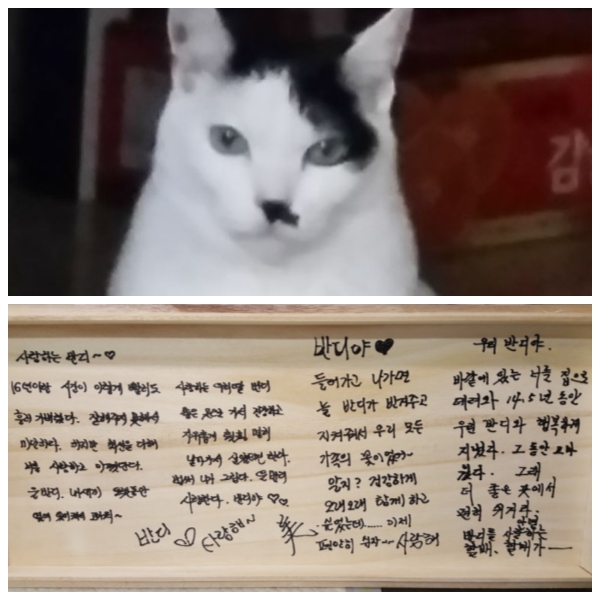 김
사랑하는 반디~♡
16년이란 시간이 이렇게 빨리도
흘러 가버렸다. 잘해주지 못해서
미안하다. 하지만 최선을 다해
너를 사랑하고 아껴었단다.
반디
사랑하는 우리딸 반디
좋은 곳으로 가서 건강하고
사랑한다. 반디야 ♡♡
♡ 사랑해~
반디야 ♥
들어가고 나가면
늘 반디가 반겨주고
지켜줘서 우리 모든
가족의 꽃이였어~
알지? 건강하게
오래오래 함께하고
싶었는데...... 이제
편안히 쉬자~ 사랑해
우리 반디야.
바깥에 있는 너를 집으로
데려와 14.5년 동안
우린 반디와 행복하게
지냈다. 그동안 고마
웠다. 그래
더 좋은 곳에서
편히 쉬거라.
안녕
반디를 사랑하는
할배, 할매가